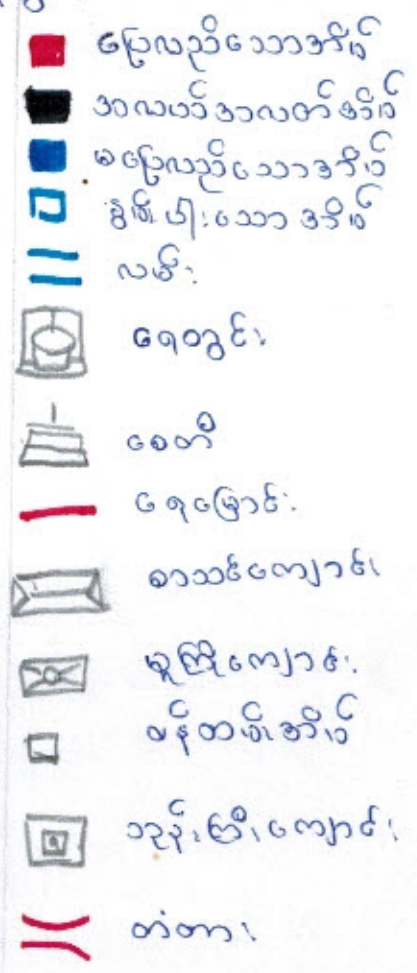 ပြေလည်သောအိမ်
အလယ်အလတ်အိမ်
မပြေလည်သောအိမ်
နွမ်းပါးသောအိမ်
လမ်း
ရေတွင်း
စေတီ
ရေမြောင်း
စာသင်ကျောင်း
မူကြိုကျောင်း
ဝန်ထမ်းအိမ်
ဘုန်းကြီးကျောင်း
တံတား